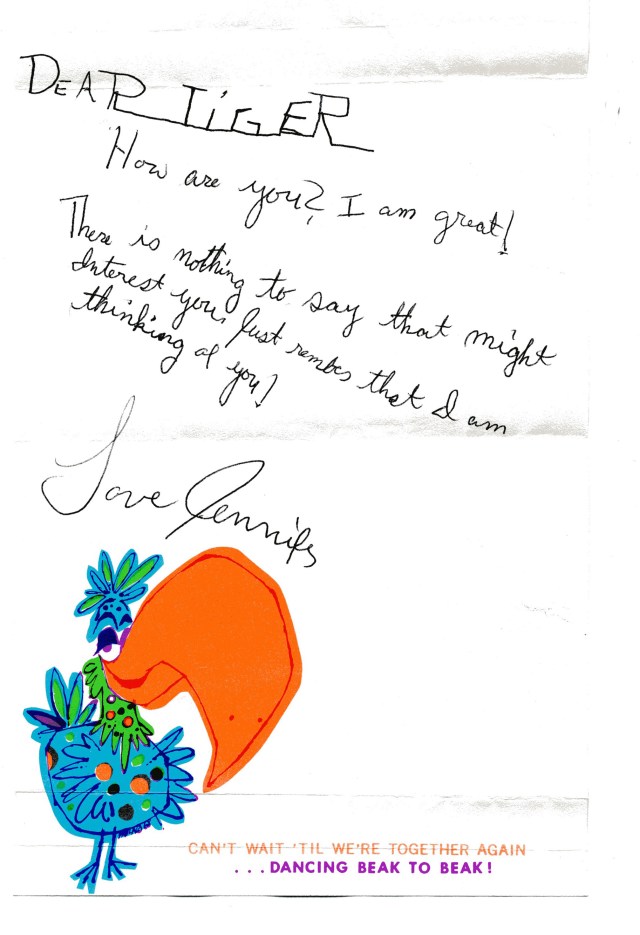 DEAR TIGER
How are you? I am great!
There is nothing to say that might
interest you, Just rember that I am
thinking of you!
Love Jennifer
CAN'T WAIT 'TIL WE'RE TOGETHER AGAIN
...DANCING BEAK TO BEAK!